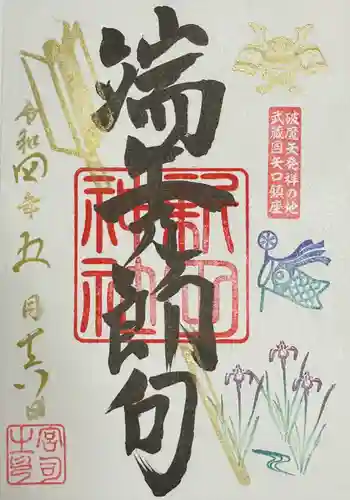 破魔矢発祥の地
武蔵国矢口鎮座
端午節句
新田神社
令和四年五月十六日
宮司之印